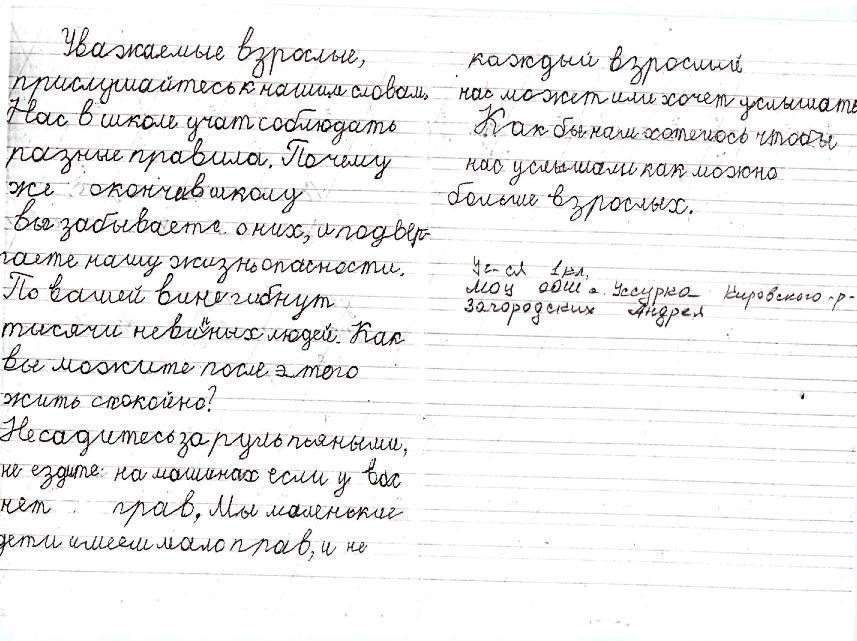 Уважаемые взрослые,
прислушайтесь к нашим словам.
Нас в школе учат соблюдать
разные правила. Почему
же окончив школу
вы забываете о них, и подвер-
гаете нашу жизнь опасности.
По вашей вине гибнут
тысячи невинных людей. Как
вы можите после этого
жить спокойно?
Не садитесь за руль пьяными,
не ездите на машинах если у вас
нет прав. Мы маленькие
дети имеем мало прав, и не
каждый взрослый
нас может или хочет услышать
Как бы нам хотелось чтобы
нас услышали как можно
больше взрослых.
Уч-ся 1 кл,
МОЦ ООШ Уссурка Кировского р-
Загородских Андрея